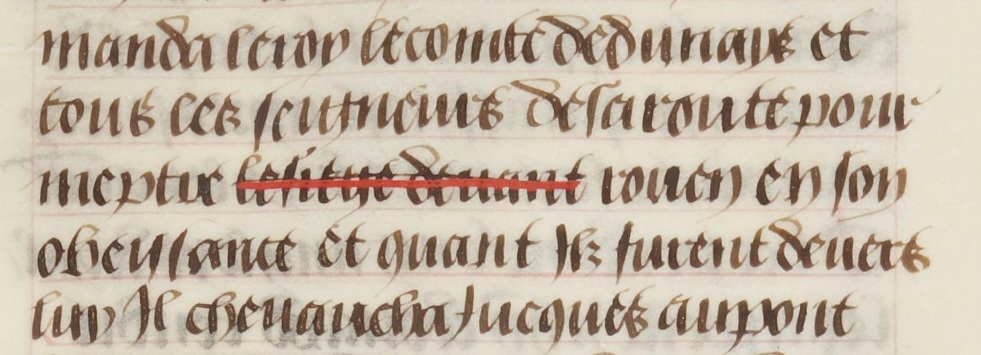 manda le roy le comte de dunays et
tous les seigneurs de sa route pour
meptre le siege devant rouen en son
obeissance et quant Ilz furent devers
luy Il chevaucha Jucques au pont